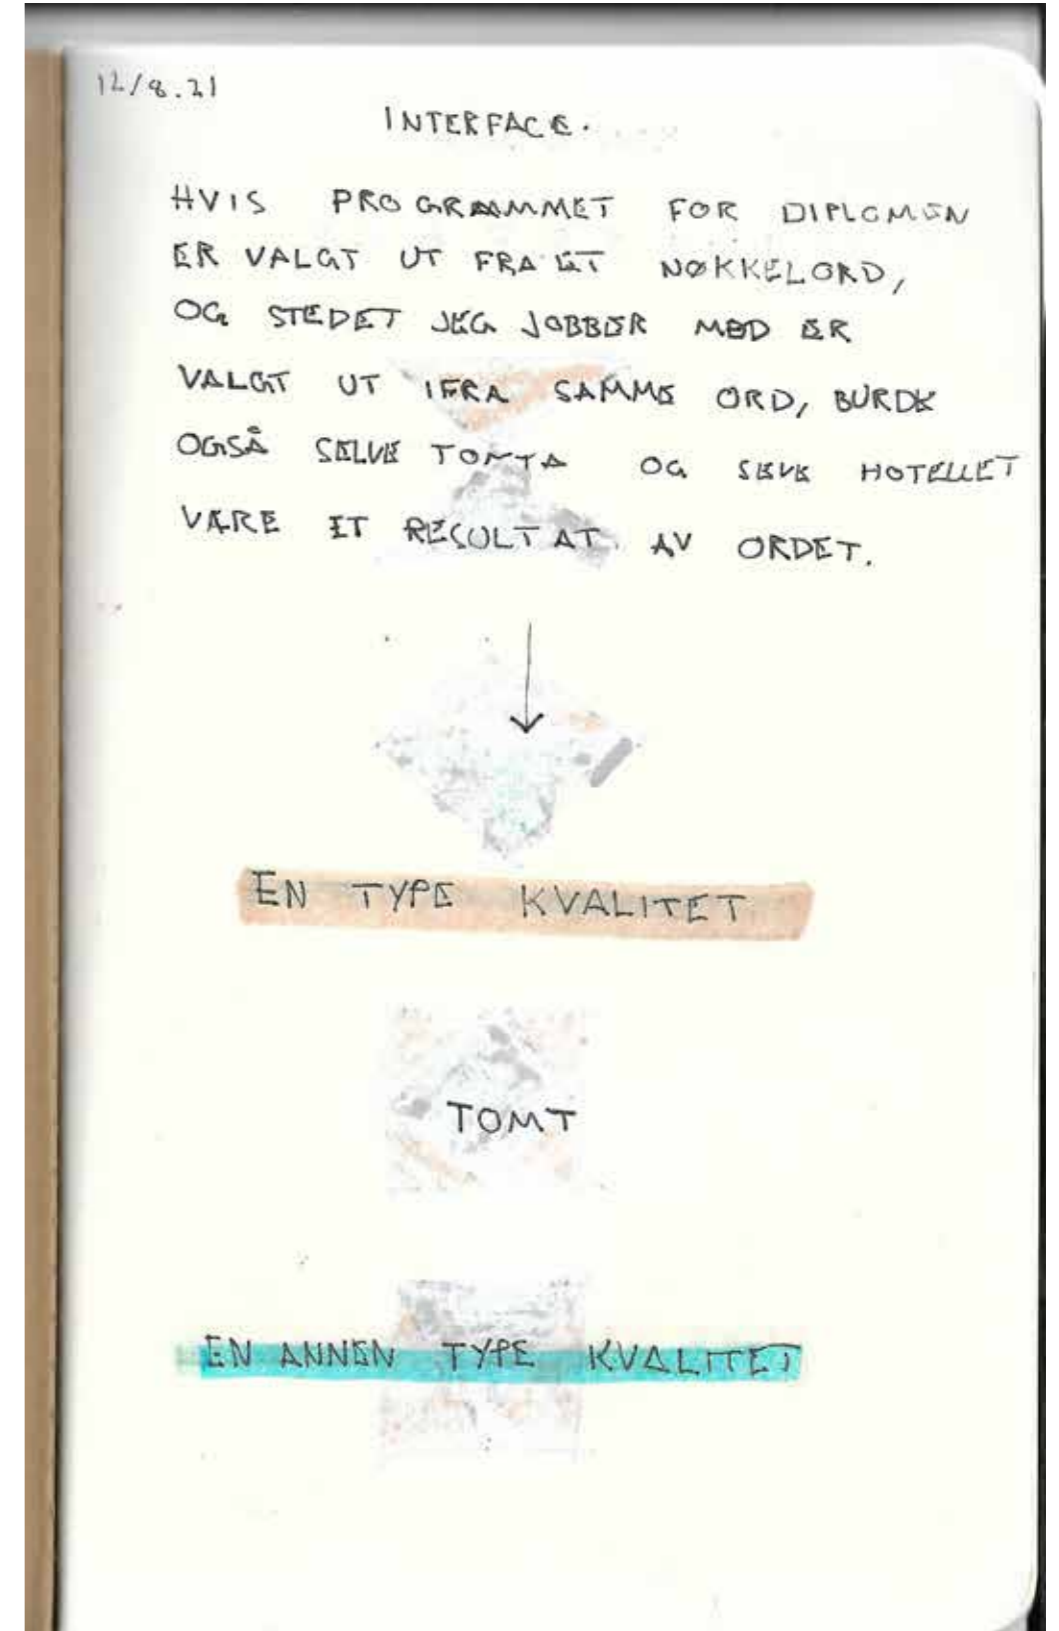 12/8.21
INTERFACE.
HVIS PROGRAMMET FOR DIPLOMEN
ER VALGT UT FRA ET NØKKELORD,
OG STEDET JEG JOBBER MED ER
VALGT UT IFRA SAMME ORD, BURDE
OGSÅ SELVE TOMTA OG SEVE HOTELLET
VÆRE ET RESULTAT AV ORDET.
EN TYPE KVALITET
TOMT
EN ANNEN TYPE KVALITET